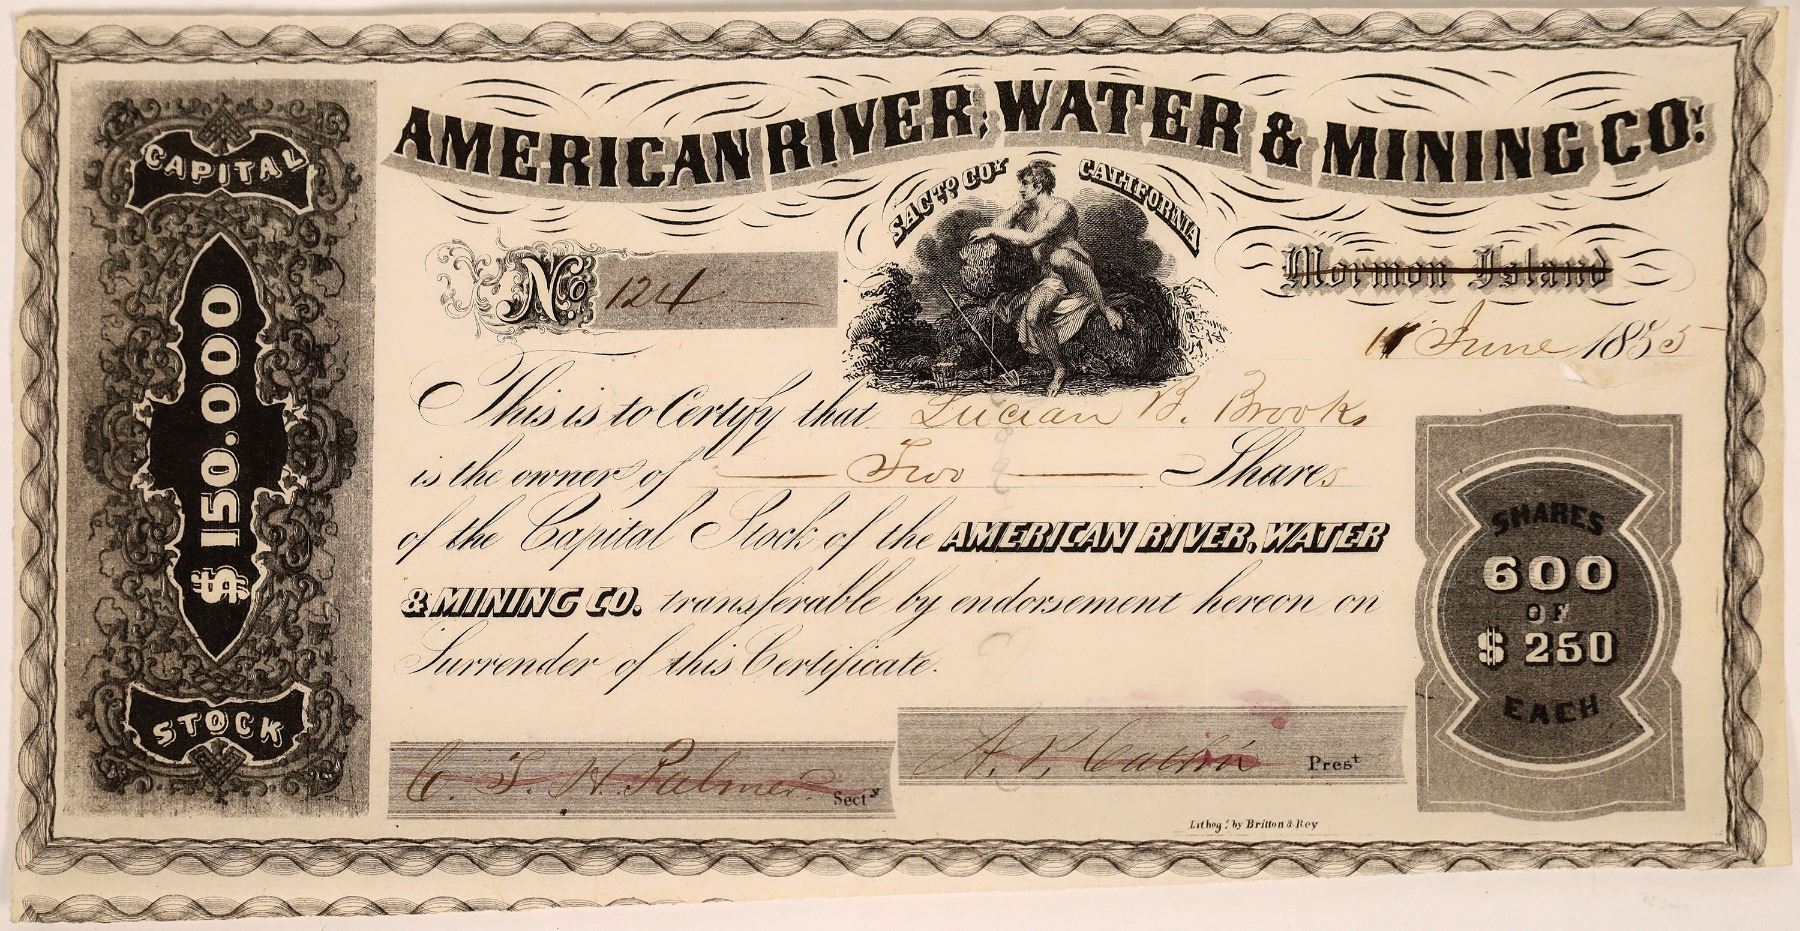 AMERICAN RIVER, WATER & MINING CO.Y
SACTO COY CALIFORNIA
CAPITAL
$150.000
STOCK
No. 124
Mormon Island
11 June 1855
This is to Certify that Lucian B. Brooks
is the owner of Two Shares
of the Capital Stock of the AMERICAN RIVER, WATER
& MINING CO. transferable by endorsement hereon on
Surrender of this Certificate.
SHARES
600
OF
$250
EACH
C. T. H. Palmer Secty
A. P. Catlin Prest
Lithogd by Britton & Rey